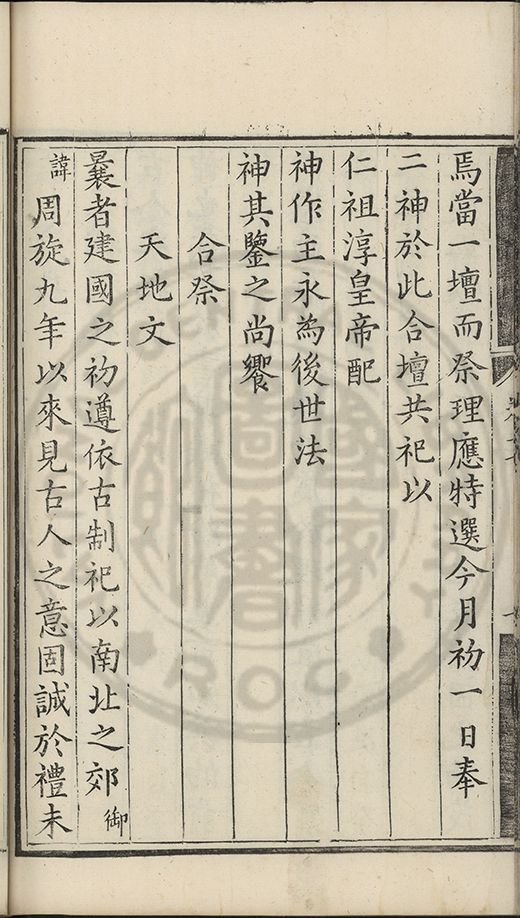 焉當一壇而祭理應特選今月初一日奉
二神於此合壇共祀以
仁祖淳皇帝配
神作主永為後世法
神其鑒之尚饗
合祭
天地文
曩者建國之初遵依古制祀以南北之郊御
諱周旋九年以來見古人之意固誠於禮未